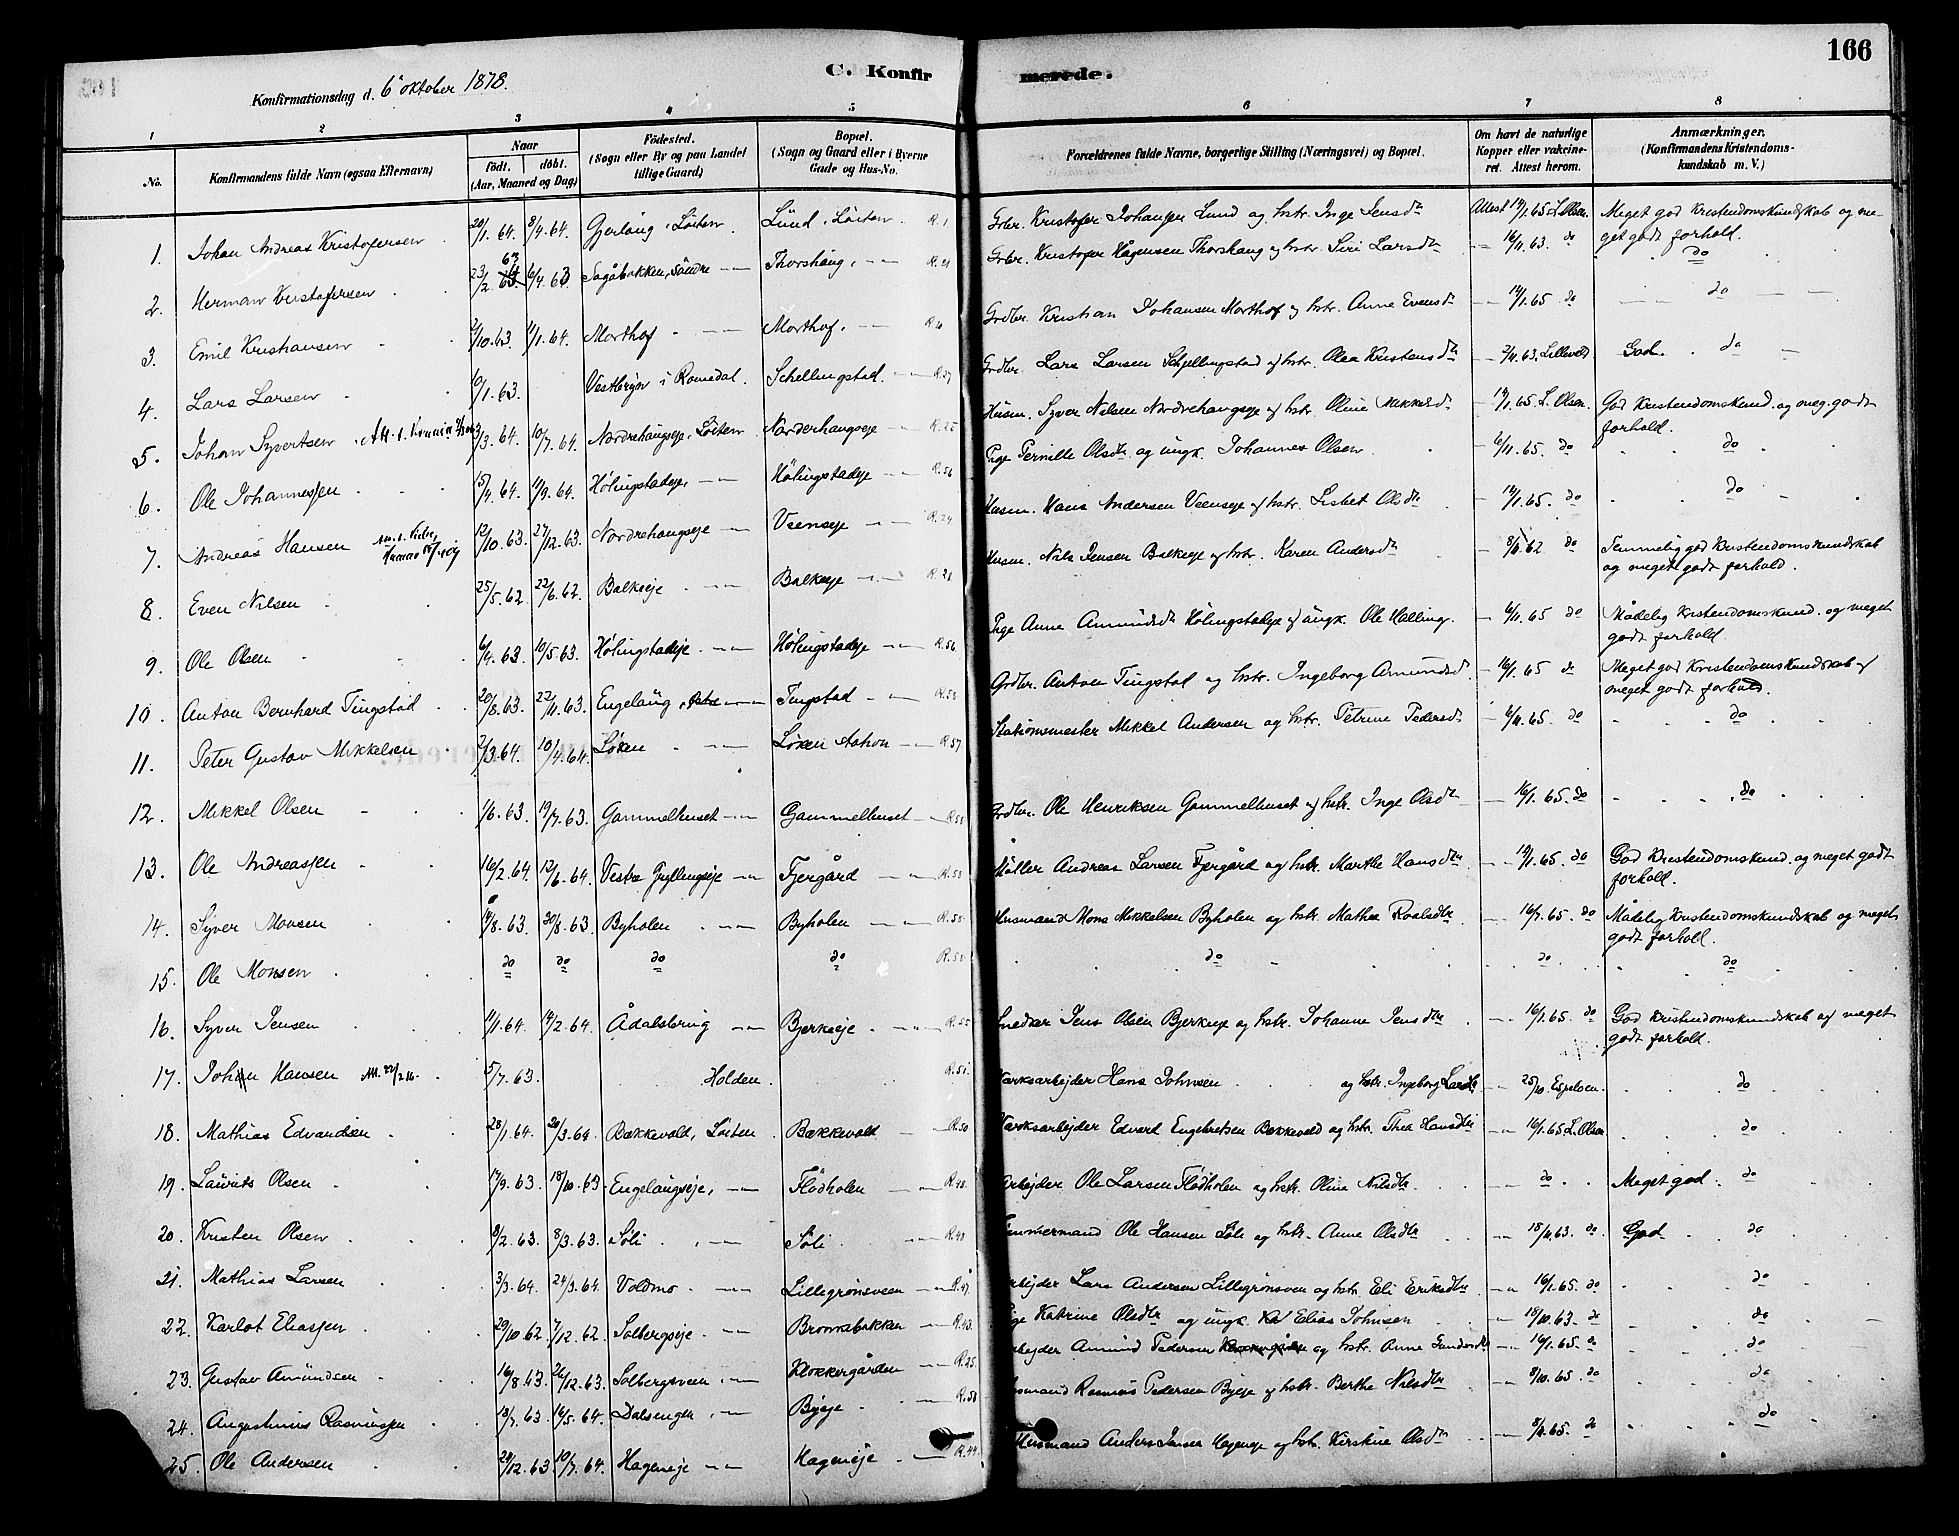 166
C. Konfirmerede.
Konfirmationsdag d. 6 oktober 1878.
1 2 3 4 5 6 7 8
No.
Konfirmandens fulde Navn (ogsaa Efternavn)
Naar
födt. döbt.
(Aar, Maaned og Dag)
Födested.
(Sogn eller By og paa Landet
tillige Gaard)
Bopæl.
(Sogn og Gaard eller i Byerne
Gade og Hus-No.
Forældrenes fulde Navne, borgerlige Stilling (Næringsvei) og Bopæl.
Om havt de naturlige
Kopper eller vakcine-
ret. Attest herom.
Anmærkninger.
(Konfirmandens Kristendoms-
kundskab m. V.)
1. Johan Andreas Kristofersen 20/1. 64. 8/4. 64. Gjerlaug, Löiten Lund, Löiten R. 1 Grbr. Kristofer Johansen Lund og hstr. Inge Jensdtr Attest 14/1. 65 L. Olsen. Meget god Kristendomskundskab og me-
get godt forhold.
2. Herman Kristofersen 23/2. 63 6/4. 63 Sagåbakken, Söndre Thorshaug R. 21 Grbr. Kristofer Hågensen Thorshaug og hstr. Siri Larsdtr 16/11. 63. do do
3. Emil Kristiansen 2/10. 63. 1/1. 64. Morthof Morthof Grdbr. Kristian Johansen Morthof og hstr. Anne Evensdtr 14/1. 65 do do
4. Lars Larsen 10/1. 63. Vestbryn i Romedal. Schellingstad R. 27 Grdbr. Lars Larsen Schjellingstad og hstr. Olea Kristensdtr 2/11. 63. God. do
5. Johan Syvertsen 3/3. 64. 10/7. 64. Nordrehaugeje, Löiten Norderhaugeje R. 25 Husm. Syver Nilsen Nordrehaugeje og hstr. Oline Mikkelsdtr 14/1. 65. L. Olsen. God Kristendomskund. og meg. godt
forhold.
6. Ole Johannesjen 15/4. 64. 11/9. 64. Hölingstadeje Hölingstadeje R. 56 Pige Pernille Olsdtr og ungk. Johannes Olsen 6/11. 65. do do
7. Andreas Hansen 12/10. 63. 27/12. 63. Nordrehaugeje Veenseje R. 24 Husm. Hans Andersen Veenseje og hstr. Lisbet Olsdtr 14/1. 65. do do
8. Even Nilsen 25/5. 62 22/6. 62. Balkeje Balkeje R. 28 Husm. Nils Jensen Balkeje og hstr. Karen Andersdtr 62 do Temmelig god Kristendomskundskab
og meget godt forhold.
9. Ole Olsen 6/4. 63 10/5. 63. Hölingstadeje Hölingstadeje R. 56 Pige Anne Amundsdtr Hölingstadeje og ungk. Ole Halling. 6/11. 65 do Mådelig Kristendomskund. og meget
godt forhold.
10. Anton Bernhard Tingstad 20/8. 63. 22/11. 63. Engelaug Tingstad R. 53 Grdbr. Anton Tingstad og hstr. Ingeborg Amundsd. 16/1. 65 do Meget god Kristendomskundskab og
meget godt forhold.
11. Peter Gustav Mikkelsen 2/3. 64. 10/4. 64. Löken Löken station R. 57. Stationsmester Mikkel Andersen og hstr. Petrine Pedersd. 6/11. 65. do do
12. Mikkel Olsen 1/6. 63. 19/7. 63. Gammelhuset Gammelhuset Grdbr. Ole Henriksen Gammelhuset og hstr. Inge Olsdtr 16/1. 65. do do
13. Ole Andreasjen 16/2. 64. 12/6. 64. Vestre Gryllingseje Fjergård Møller Andreas Larsen Fjergård og hstr. Marthe Hansdtr 14/1. 65. do God Kristendomskund. og meget godt
forhold.
14. Syver Monsen 4/8. 63. 30/8. 63. Byholen Byholen R. 55 Husmand Mons Mikkelsen Byholen og hstr. Mathea Roalsdtr 16/1. 65. do Mådelig Kristendomskundskab og meget
godt forhold.
15. Ole Monsen do do do do R. 55 do do do
16. Syver Jensen 11/1. 64. 14/2. 64. Ådalsbrug Bjerkeje R. 55 Snedker Jens Olsen Bjerkeje og hstr. Johanne Jensdtr 16/1. 65 do God Kristendomskundskab og meget
godt forhold.
17. Johan Hansen 5/7. 63. Holden R. 51. Værksarbejder Hans Johnsen og hstr. Ingeborg Larsdtr 25/10. Espeloen. do
18. Mathias Edvardsen 28/1. 64. 20/3. 64. Bækkevold, Löiten Bækkevold R. 50 Værksarbejder Edvard Engebretsen Bækkevold og hstr. Thea Hansdtr 16/1. 65. L. Olsen do
19. Laurits Olsen 17/9. 63. 18/10. 63. Engelaugseje Flödholen R. 48. Arbejder Ole Larsen Flödholen og hstr. Oline Nilsdtr. do Meget god. do
20. Kristen Olsen 8/2. 63. 8/3. 63. Söli Söli R. 48 Tømmermand Ole Hansen Söli og hstr. Anne Olsdtr 18/11. 63. do God do
21. Mathias Larsen 3/3. 64. 24/3. 64. Voldmo Lillegrönsveen R. 47. Arbejder Lars Andersen Lillegrönsveen og hstr. Eli Eriksdtr 16/1. 65. do do
22. Karlot Eliasjen 29/10 62. 7/12. 62. Solbergseje Bronksbakken R. 43. Pige Katrine Olsdtr og ungk. Elias Johnsen 18/10. 63. do do
23. Gustav Amundsen 16/8. 63. 26/12. 63. Solbergsveen Klokkergården R. 25. Arbejder Amund Pedersen Klokkergården og hstr. Anne 16/1. 65. do do
24. Augustinus Rasmusjen 18/7. 63 16/5. 64. Dalsengen Byeje R. 58 Husmand Rasmus Pedersen Byeje og hstr. Berthe Nilsdtr 8/10. 65. do do
25. Ole Andersen 24/12. 63. 10/7. 64. Hageneje Hageneje R. 44. Husmand Anders Jensen Hageneje og hstr. Kirstine Olsdtr 8/11. 65. do do